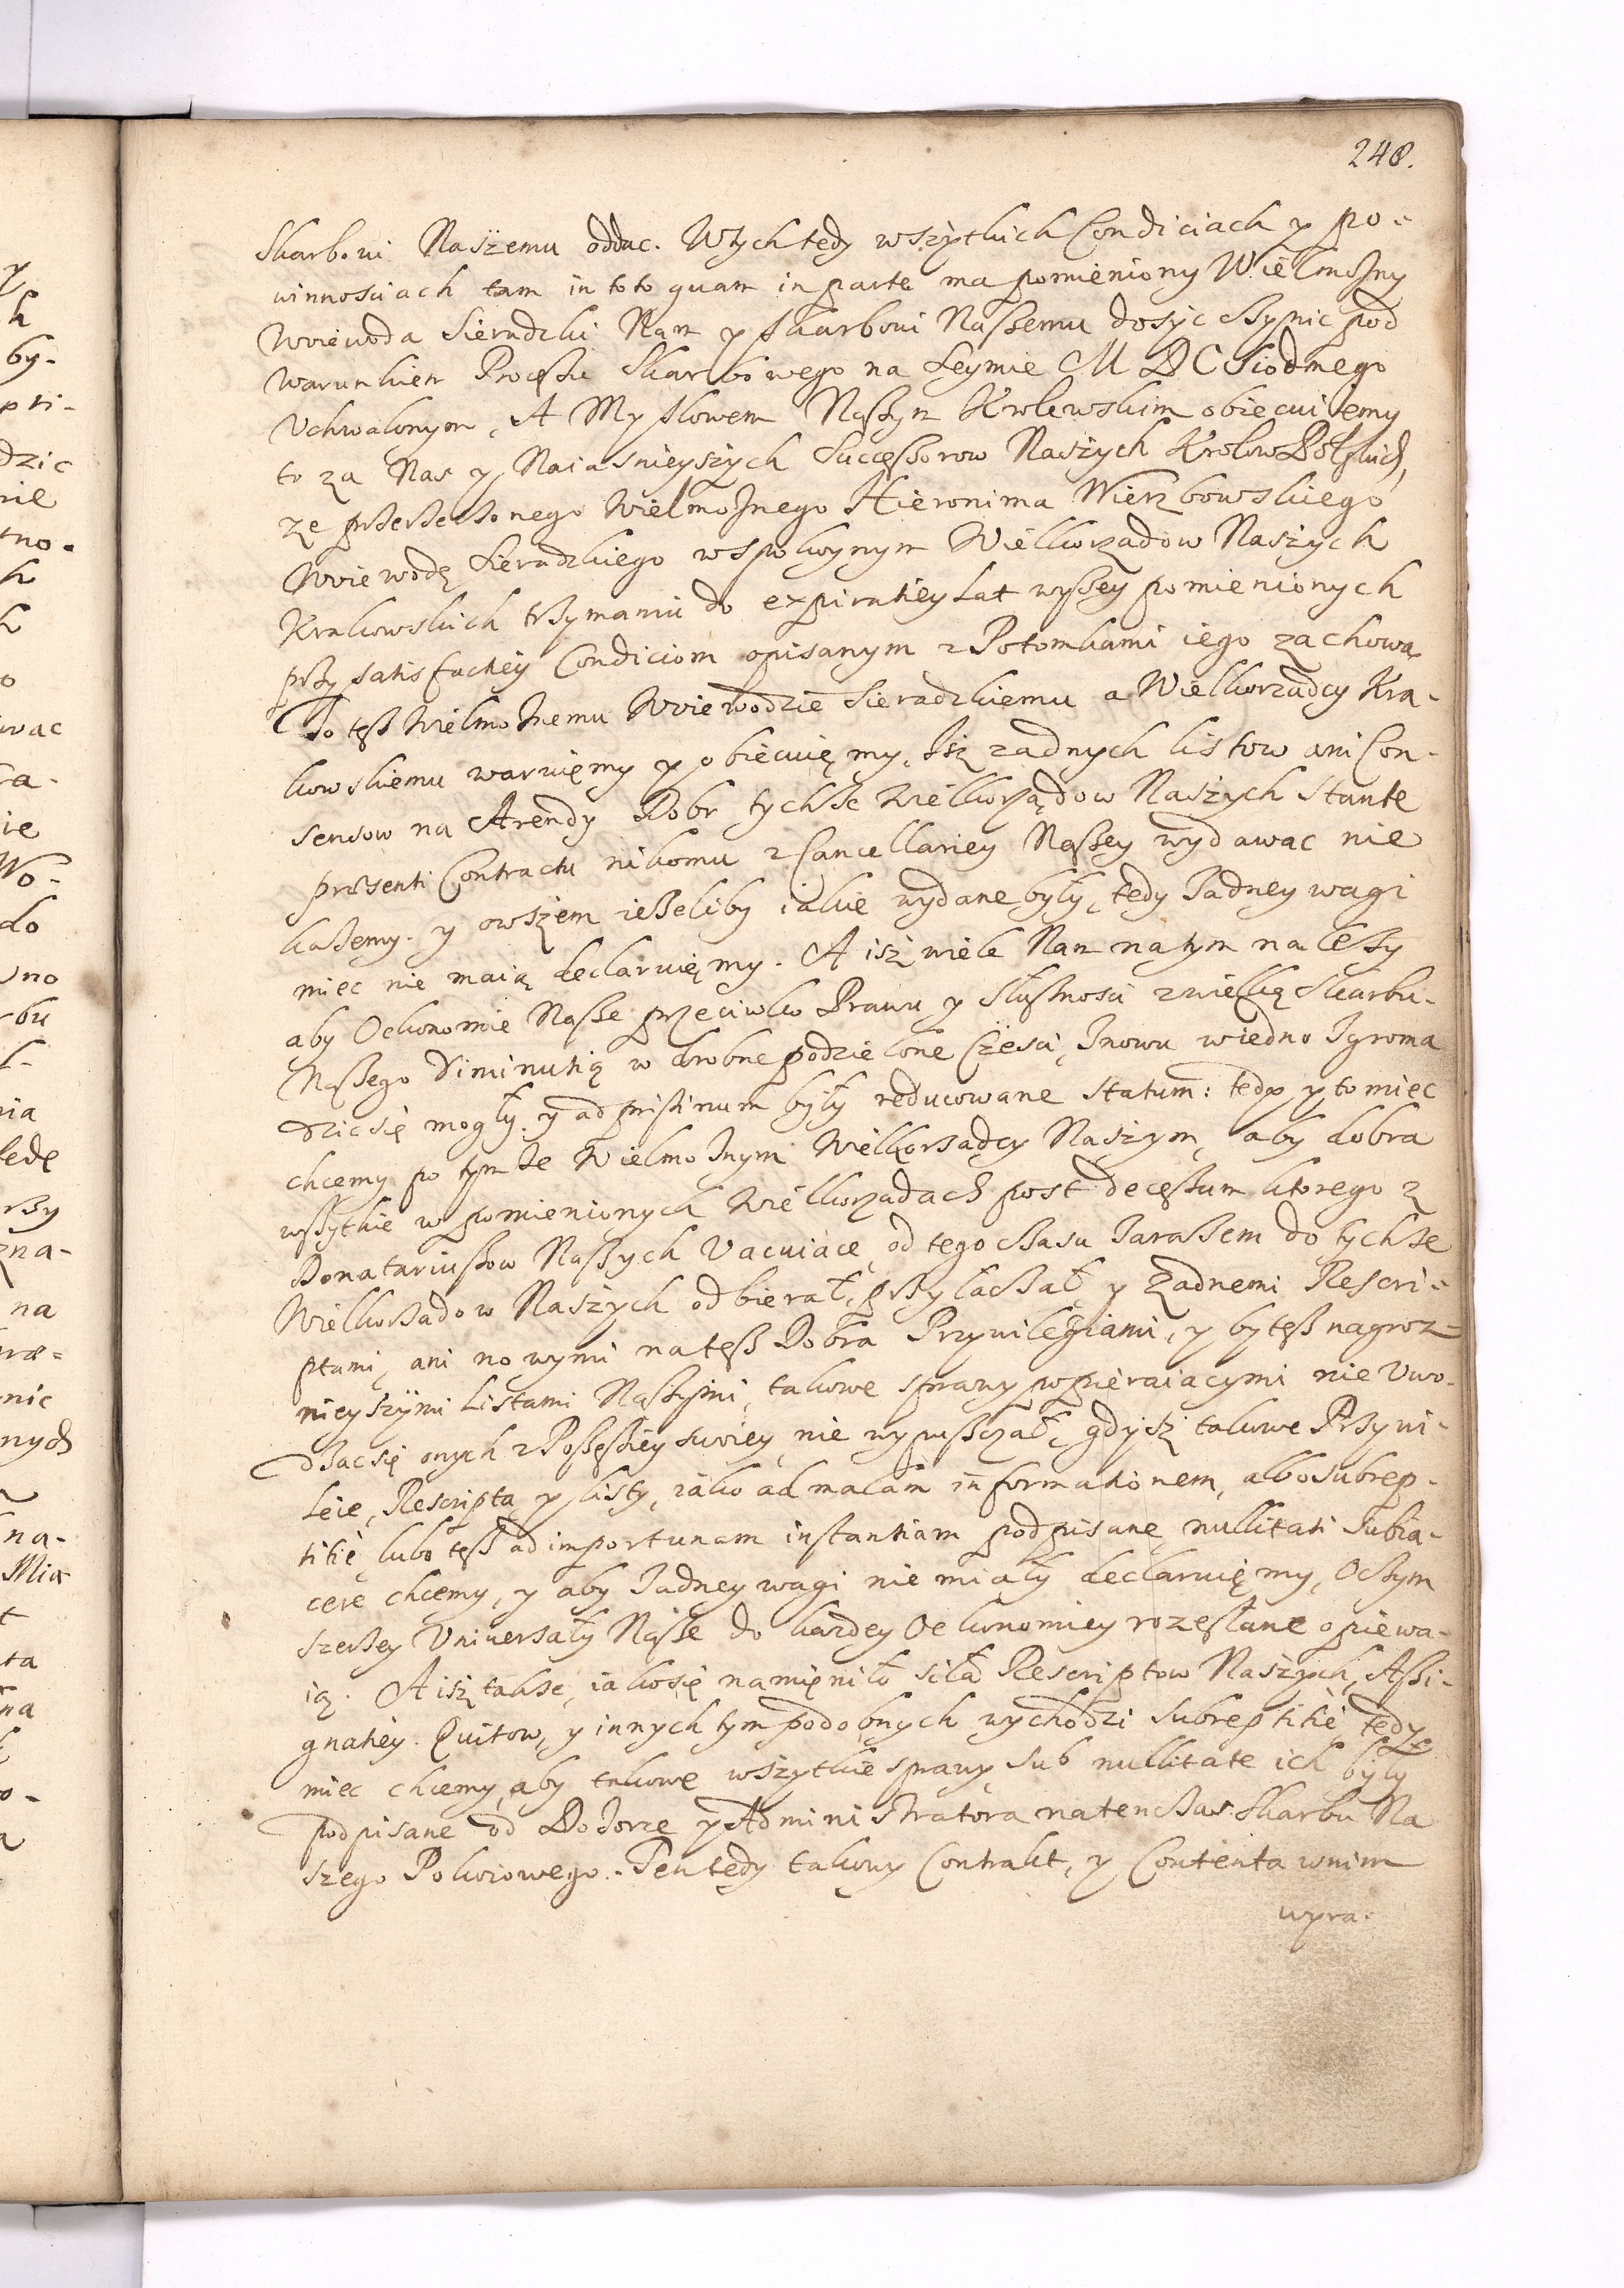 248.
Skarbowi Naszemu oddac. Wtych tedy wszytkich Condiciach y po-
winnosciach tam in toto quam in parte ma pomieniony Wielmożny
Woiewoda Sieradzki Nam y skarbowi Naßemu dosyc czynic pod
warunkiem Procęssu Skarbowego na Seymie M D C Siodmego
Vchwalonym, A My słowem Naszym Krolewskim obiecuiemy
to za Nas y Naiasnieyszych Successorow Naszych Krolow Polskich,
ze przerzeczonego Wielmożnego Hieronima Wierzbowskiego
Woiewodę Sieradzkiego w spokoynym Wielkorządow Naszych
Krakowskich trzymaniu do expiratiey Lat wyßey pomienionych
przy satisfactiey Condiciom opisanym z Potomkami iego zachowa-
To teß Wielmożnemu Woiewodzie Sieradzkiemu a Wielkorządcy Kra-
kowskiemu waruięmy y obiecuięmy, Isz zadnych listow ani Con-
sensow na Arendy Dobr tychże Wielkorządow Naszych Stante
præsenti Contractu nikomu z Cancellariey Naßey wydawac nie
każemy. y owszem ieżeliby iakie wydane były, tedy żadney wagi
miec nie maią declaruięmy. A isz wiele Nam natym należy
aby Oekonomie Naße przeciwko Prawu y Słusznosci zwielką Skarbu
Naßego diminutią w drobne podzielone Częsci, znowu wiedno zgroma
dzic się mogły. y ad pristinum były reducowane statum: tedy y to miec
chcemy po tymże Wielmożnym Wielkorządcy Naszym, aby dobra
wßytkie w pomienionych Wielkorządach post decęssum ktorego z
Donatariußow Naßych Vacuiące, od tego czasu zarazem do tychże
Wielkorządow Naszych odbierał, przyłączał y żadnemi Rescri-
ptami, ani nowymi na teß Dobra Przywilegiami, y by teß nagroz-
nieyszymi Listami Naszymi, takowe sprawy wpieraiącymi nie Vwo-
dząc się onych z Possessiey swoiey nie wypußczał, gdyż takowe Przywi-
leie, Rescripta y listy, iako ad malam informationem, albo subrep-
titie, lubo teß ad importunam instantiam podpisane, nullitati subia-
cere chcemy, y aby żadney wagi nie miały declaruięmy, O czym
szerzey Vniversały Naße do każdey Oekonomiey rozesłane opiewa-
ią. A isz także, iako się namięniło siła Rescriptow Naszych, Assi-
gnatiey. Quitow, y innych tym podobnych wychodzi subreptitie, tedy
miec chcemy, aby takowe wszytkie sprawy sub nullitate ich były
podpisane od Dozorce y Administratora natenczas Skarbu Na
szego Pokoiowego. Ten tedy takowy Contrakt, y Contenta wnim
wyra-